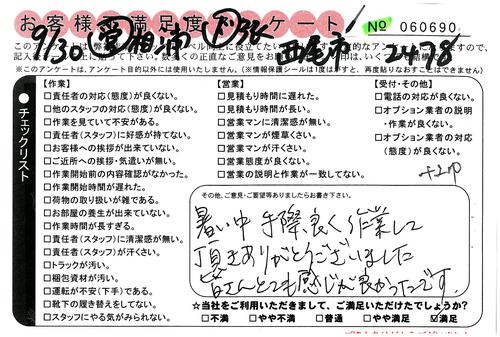 お客様満足度アンケート
№ 060690
9/30 西尾市 2478
※このアンケートは、アンケート目的以外には使用いたしません。(※情報保護シールは1度はすと、再度貼りなおすことはできません)
●チェックリスト
【作業】
□責任者の対応(態度)が良くない。
□他のスタッフの対応(態度)が良くない。
□作業を見ていて不安がある。
□責任者(スタッフ)に好感が持てない。
□お客様への挨拶が出来ていない。
□ご近所への挨拶・気遣いが無い。
□作業開始前の内容確認がなかった。
□作業開始時間が遅れた。
□荷物の取り扱いが雑である。
□お部屋の養生が出来ていない。
□作業時間が長すぎる。
□責任者(スタッフ)に清潔感が無い。
□責任者(スタッフ)が汗くさい。
□トラックが汚い。
□梱包資材が汚い。
□運転が不安(下手)である。
□靴下の履き替えをしてない。
□スタッフにやる気がみられない。
【営業】
□見積もり時間に遅れた。
□見積もり時間が長い。
□営業マンに清潔感が無い。
□営業マンが煙草くさい。
□営業マンが汗くさい。
□営業態度が良くない。
□営業の説明と作業が一致してない。
【受付・その他】
□電話の対応が良くない。
□オプション業者の説明
・作業が良くない。
□オプション業者の対応
(態度)が良くない。
その他、ご意見・ご要望等ありましたらお書き下さい。
暑い中 手際良く作業して
頂きありがとうございました
皆さんとても感じが良かったです。
☆当社をご利用いただきまして、ご満足いただけたでしょうか?
□不満 □やや不満 □普通 □やや満足 ☑満足